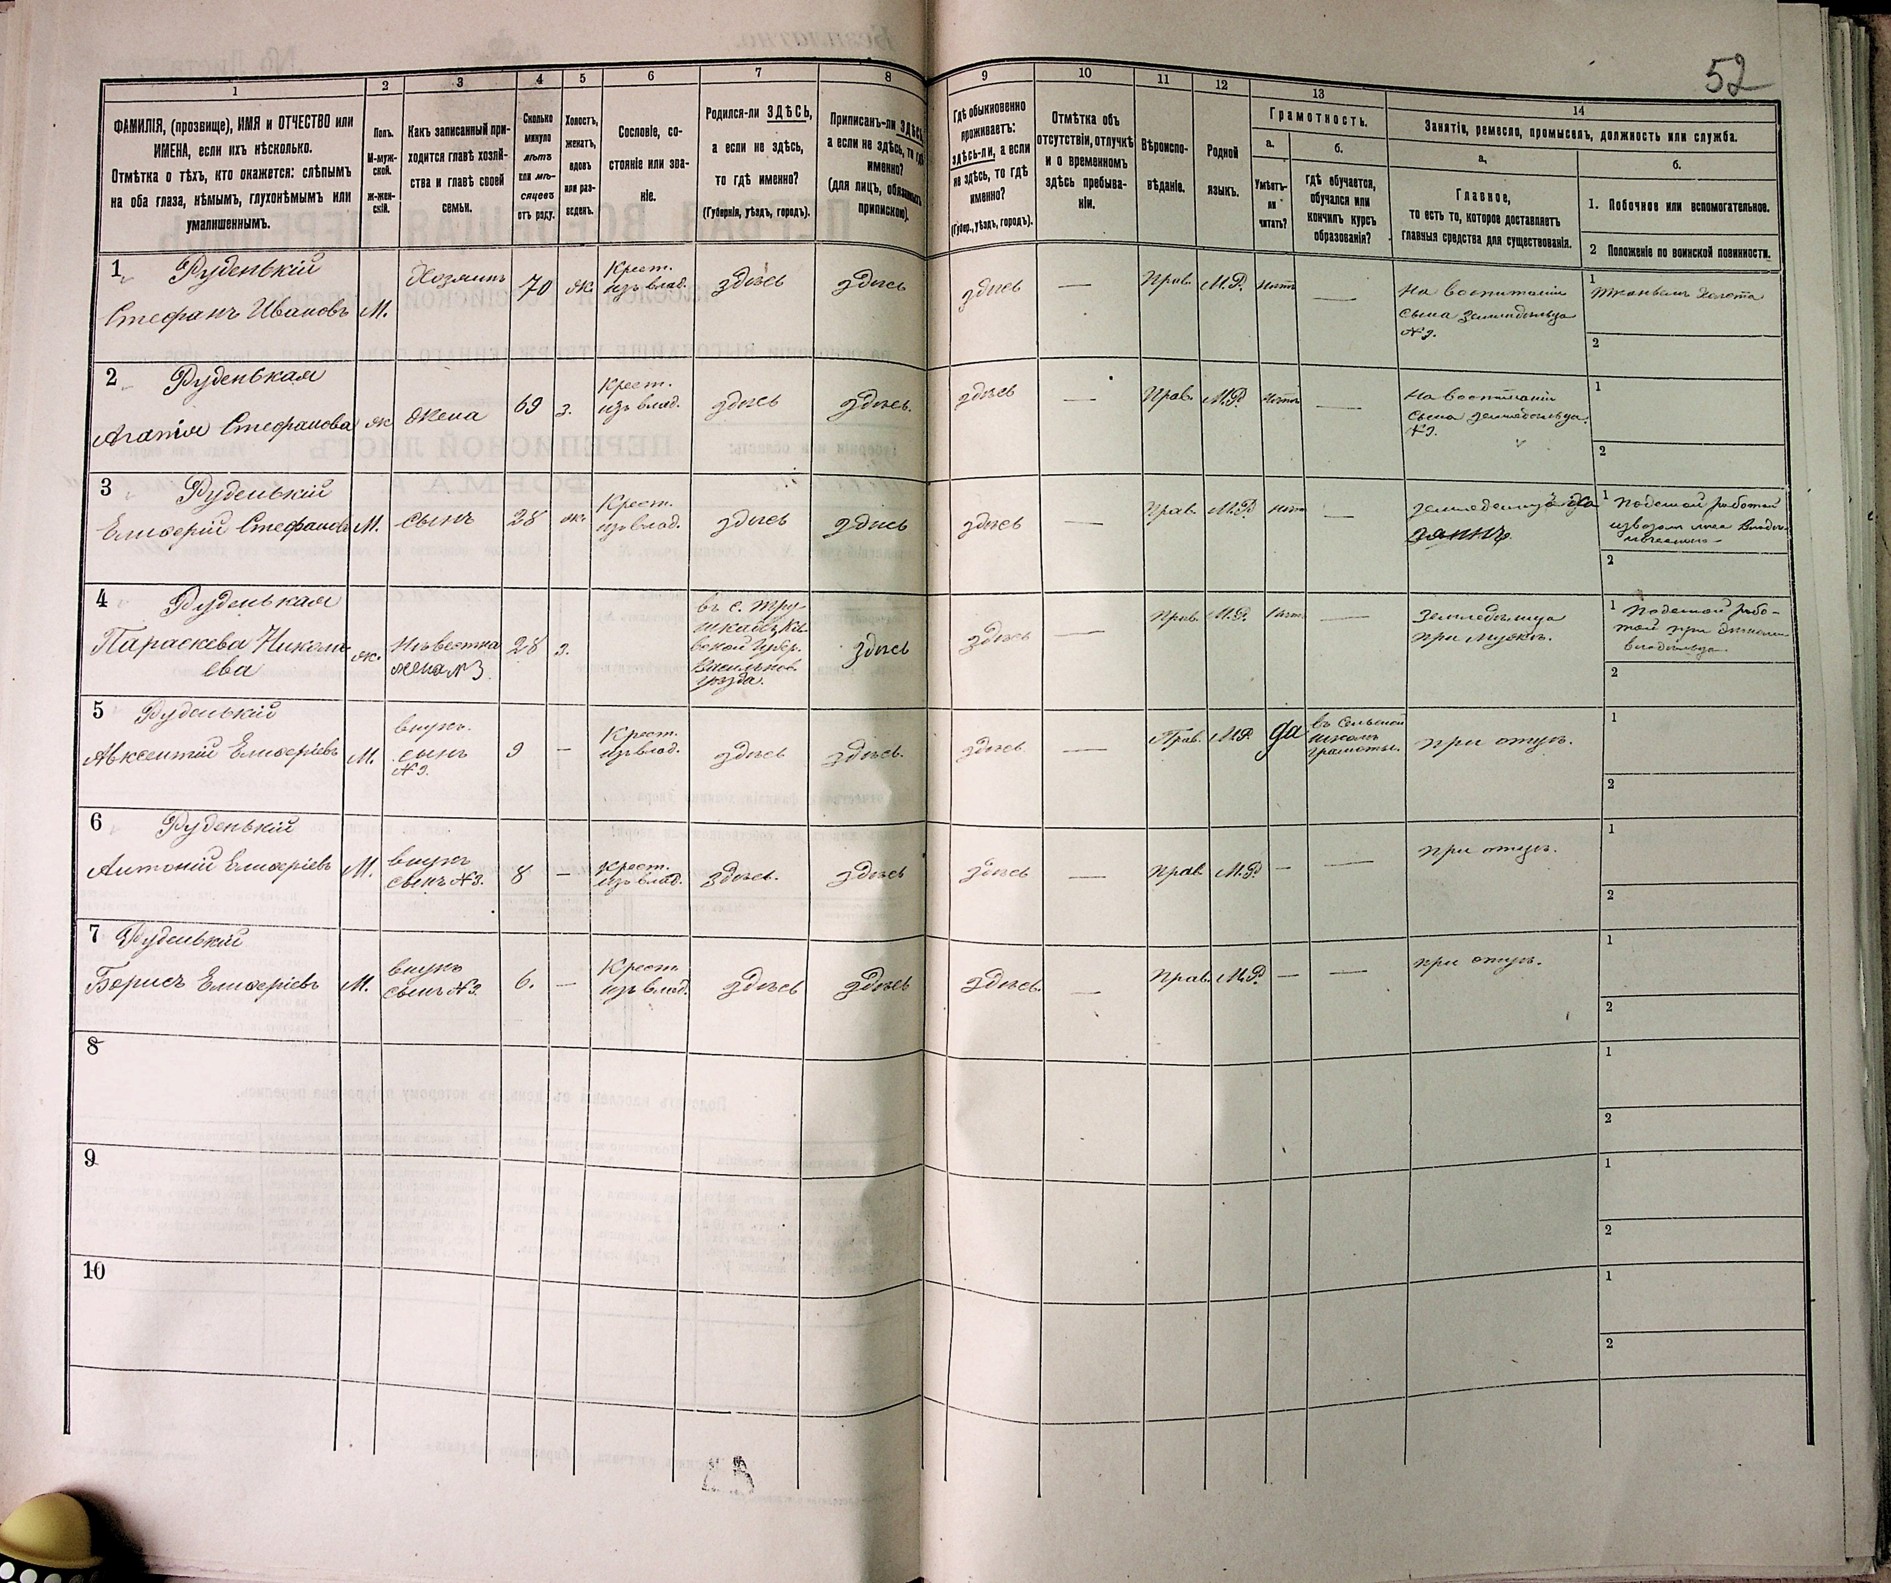 52
1 2 3 4 5 6 7 8 9 10 11 12 13 14
ФАМИЛІЯ, (прозвище), ИМЯ и ОТЧЕСТВО или
ИМЕНА, если ихъ нѣсколько.
Отмѣтка о тѣхъ, кто окажется: слѣпымъ
на оба глаза, нѣмымъ, глухонѣмымъ или
умалишеннымъ.
Полъ.
М-муж-
ской.
Ж-жен-
скій.
Какъ записанный при-
ходится главѣ хозяй-
ства и главѣ своей
семьи.
Сколько
минуло
лѣтъ
или мѣ-
сяцевъ
отъ роду.
Холостъ,
женатъ,
вдовъ
или раз-
веденъ.
Сословіе, со-
стояніе или зва-
ніе.
Родился-ли ЗДѢСЬ,
а если не здѣсь,
то гдѣ именно?
(Губернія, уѣздъ, городъ).
Приписанъ-ли ЗДѢСЬ,
а если не здѣсь, то гдѣ
именно?
(для лицъ, обязанныхъ
припискою).
Гдѣ обыкновенно
проживаетъ:
здѣсь-ли, а если
не здѣсь, то гдѣ
именно?
(Губер., уѣздъ, городъ).
Отмѣтка объ
отсутствіи, отлучкѣ
и о временномъ
здѣсь пребыва-
ніи.
Вѣроиспо-
вѣданіе.
Родной
языкъ.
Грамотность.
а.
Умѣетъ-
ли
читать?
б.
гдѣ обучается,
обучался или
кончилъ курсъ
образованія?
Занятіе, ремесло, промыселъ, должность или служба.
а.
Главное,
то есть то, которое доставляетъ
главныя средства для существованія.
б.
1. Побочное или вспомогательное.
2 Положеніе по воинской повинности.
1 Руденькій
Стефанъ Ивановъ М. Хозяинъ 70 ж. Крест. изъ влад. здѣсь здѣсь здѣсь — Прав. М.Р. нѣтъ —
На воспитаніи
сына земледѣльца
№3.
1
2
2 Руденькая
Агапія Стефанова ж. жена 69 з. Крест. изъ влад. здѣсь здѣсь. здѣсь — Прав. М.Р. нѣтъ —
На воспитаніи
сына земледѣльца.
№3.
1
2
3 Руденькій
Елиферій Стефановъ М. сынъ 28 ж. Крест. изъ влад. здѣсь здѣсь здѣсь — Прав. М.Р. нѣтъ —
1 Поденной работой
2
4 Руденькая
Параскева Николаева ж. Невѣстка жена №3. 28 з.
въ с. Тру-
шкахъ, Кіе-
вской Губер.
Васильков.
уѣзда.
здѣсь здѣсь — Прав. М.Р. нѣтъ —
Земледѣлица
при мужѣ.
1 Поденной рабо-
той при
2
5 Руденькій
Авксентій Елиферіевъ М. внукъ. сынъ №3. 9 — Крест. изъ влад. здѣсь здѣсь. здѣсь — Прав. М.Р. да
въ сельской
школѣ
грамоты.
при отцѣ.
1
2
6 Руденькій
Антоній Елиферіевъ М. внукъ сынъ №3. 8 — Крест. изъ влад. здѣсь. здѣсь здѣсь — Прав. М.Р. — —
при отцѣ.
1
2
7 Руденькій
Борисъ Елиферіевъ М. внукъ сынъ №3. 6. — Крест. изъ влад. здѣсь здѣсь здѣсь. — Прав. М.Р. — —
при отцѣ.
1
2
8
1
2
9
1
2
10
1
2